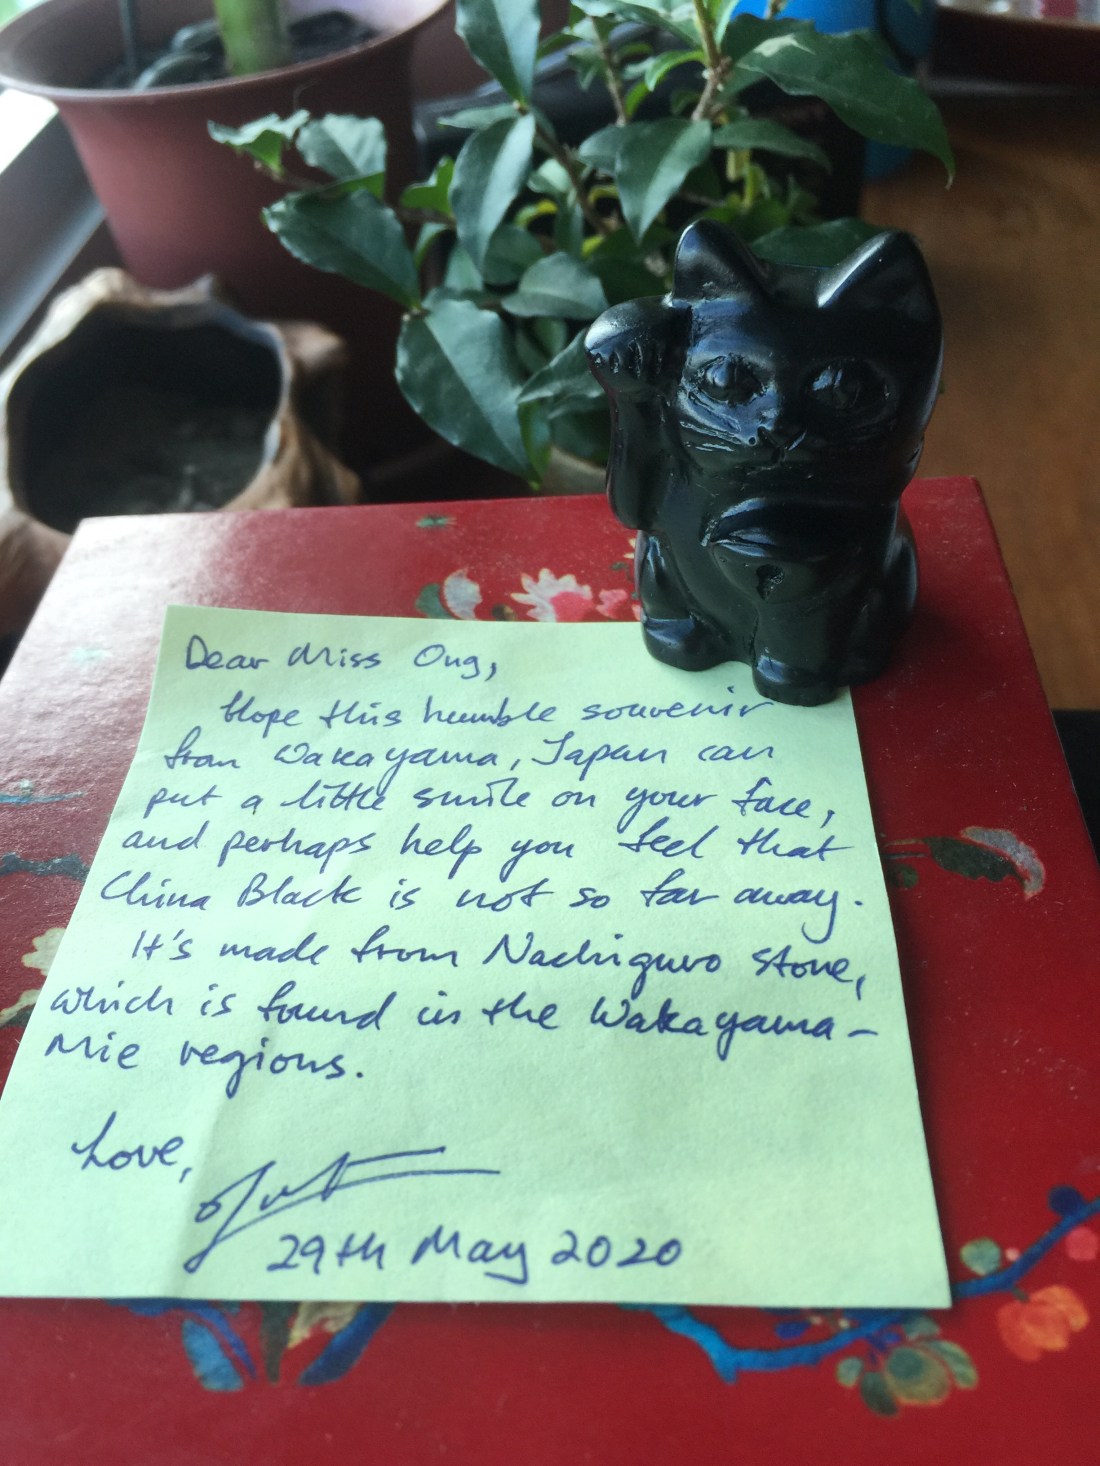 Dear Miss Ong,
Hope this humble souvenir
from Wakayama, Japan can
put a little smile on your face,
and perhaps help you feel that
China Black is not so far away.
It's made from Nachiguro stone,
which is found in the Wakayama-
Mie regions.
Love,
29th May 2020